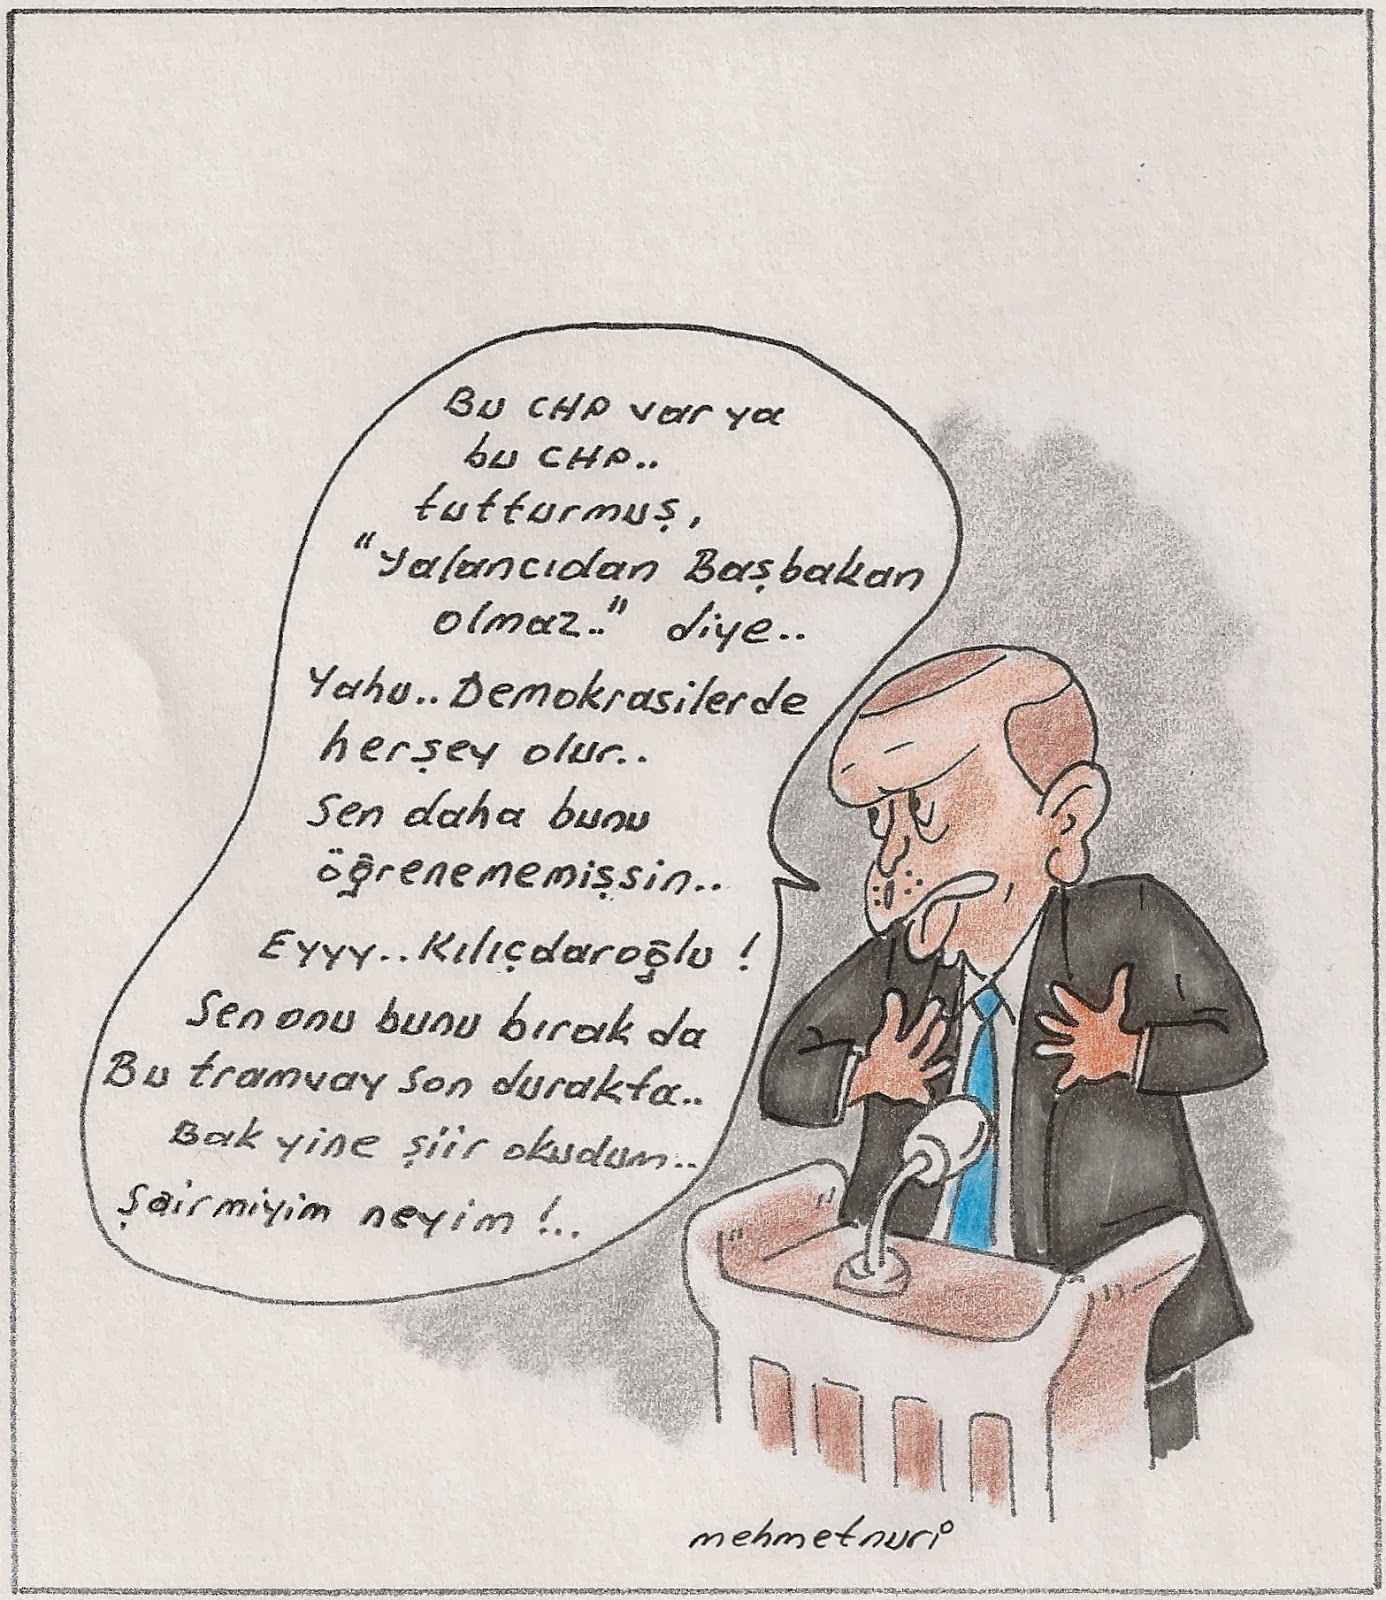 Bu CHP var ya
bu CHP..
tutturmuş,
"Yalancıdan Başbakan
olmaz.." diye..
Yahu.. Demokrasilerde
herşey olur..
Sen daha bunu
öğrenememişsin..
Eyyy.. Kılıçdaroğlu !
Sen onu bunu bırak da
Bu tramvay son durakta..
Bak yine şiir okudum..
Şairmiyim neyim !..
mehmetnuri